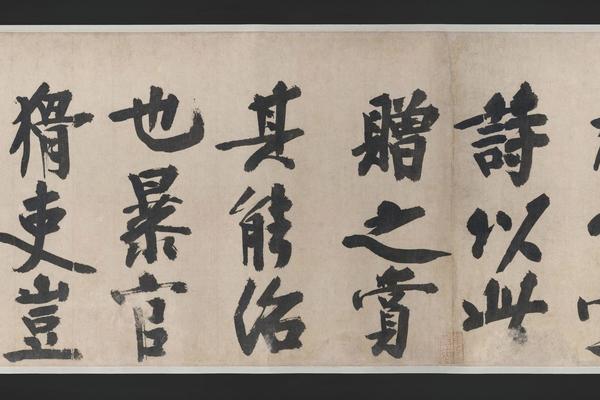 詩以此
贈之賞
其能治
也暴官
猾吏豈